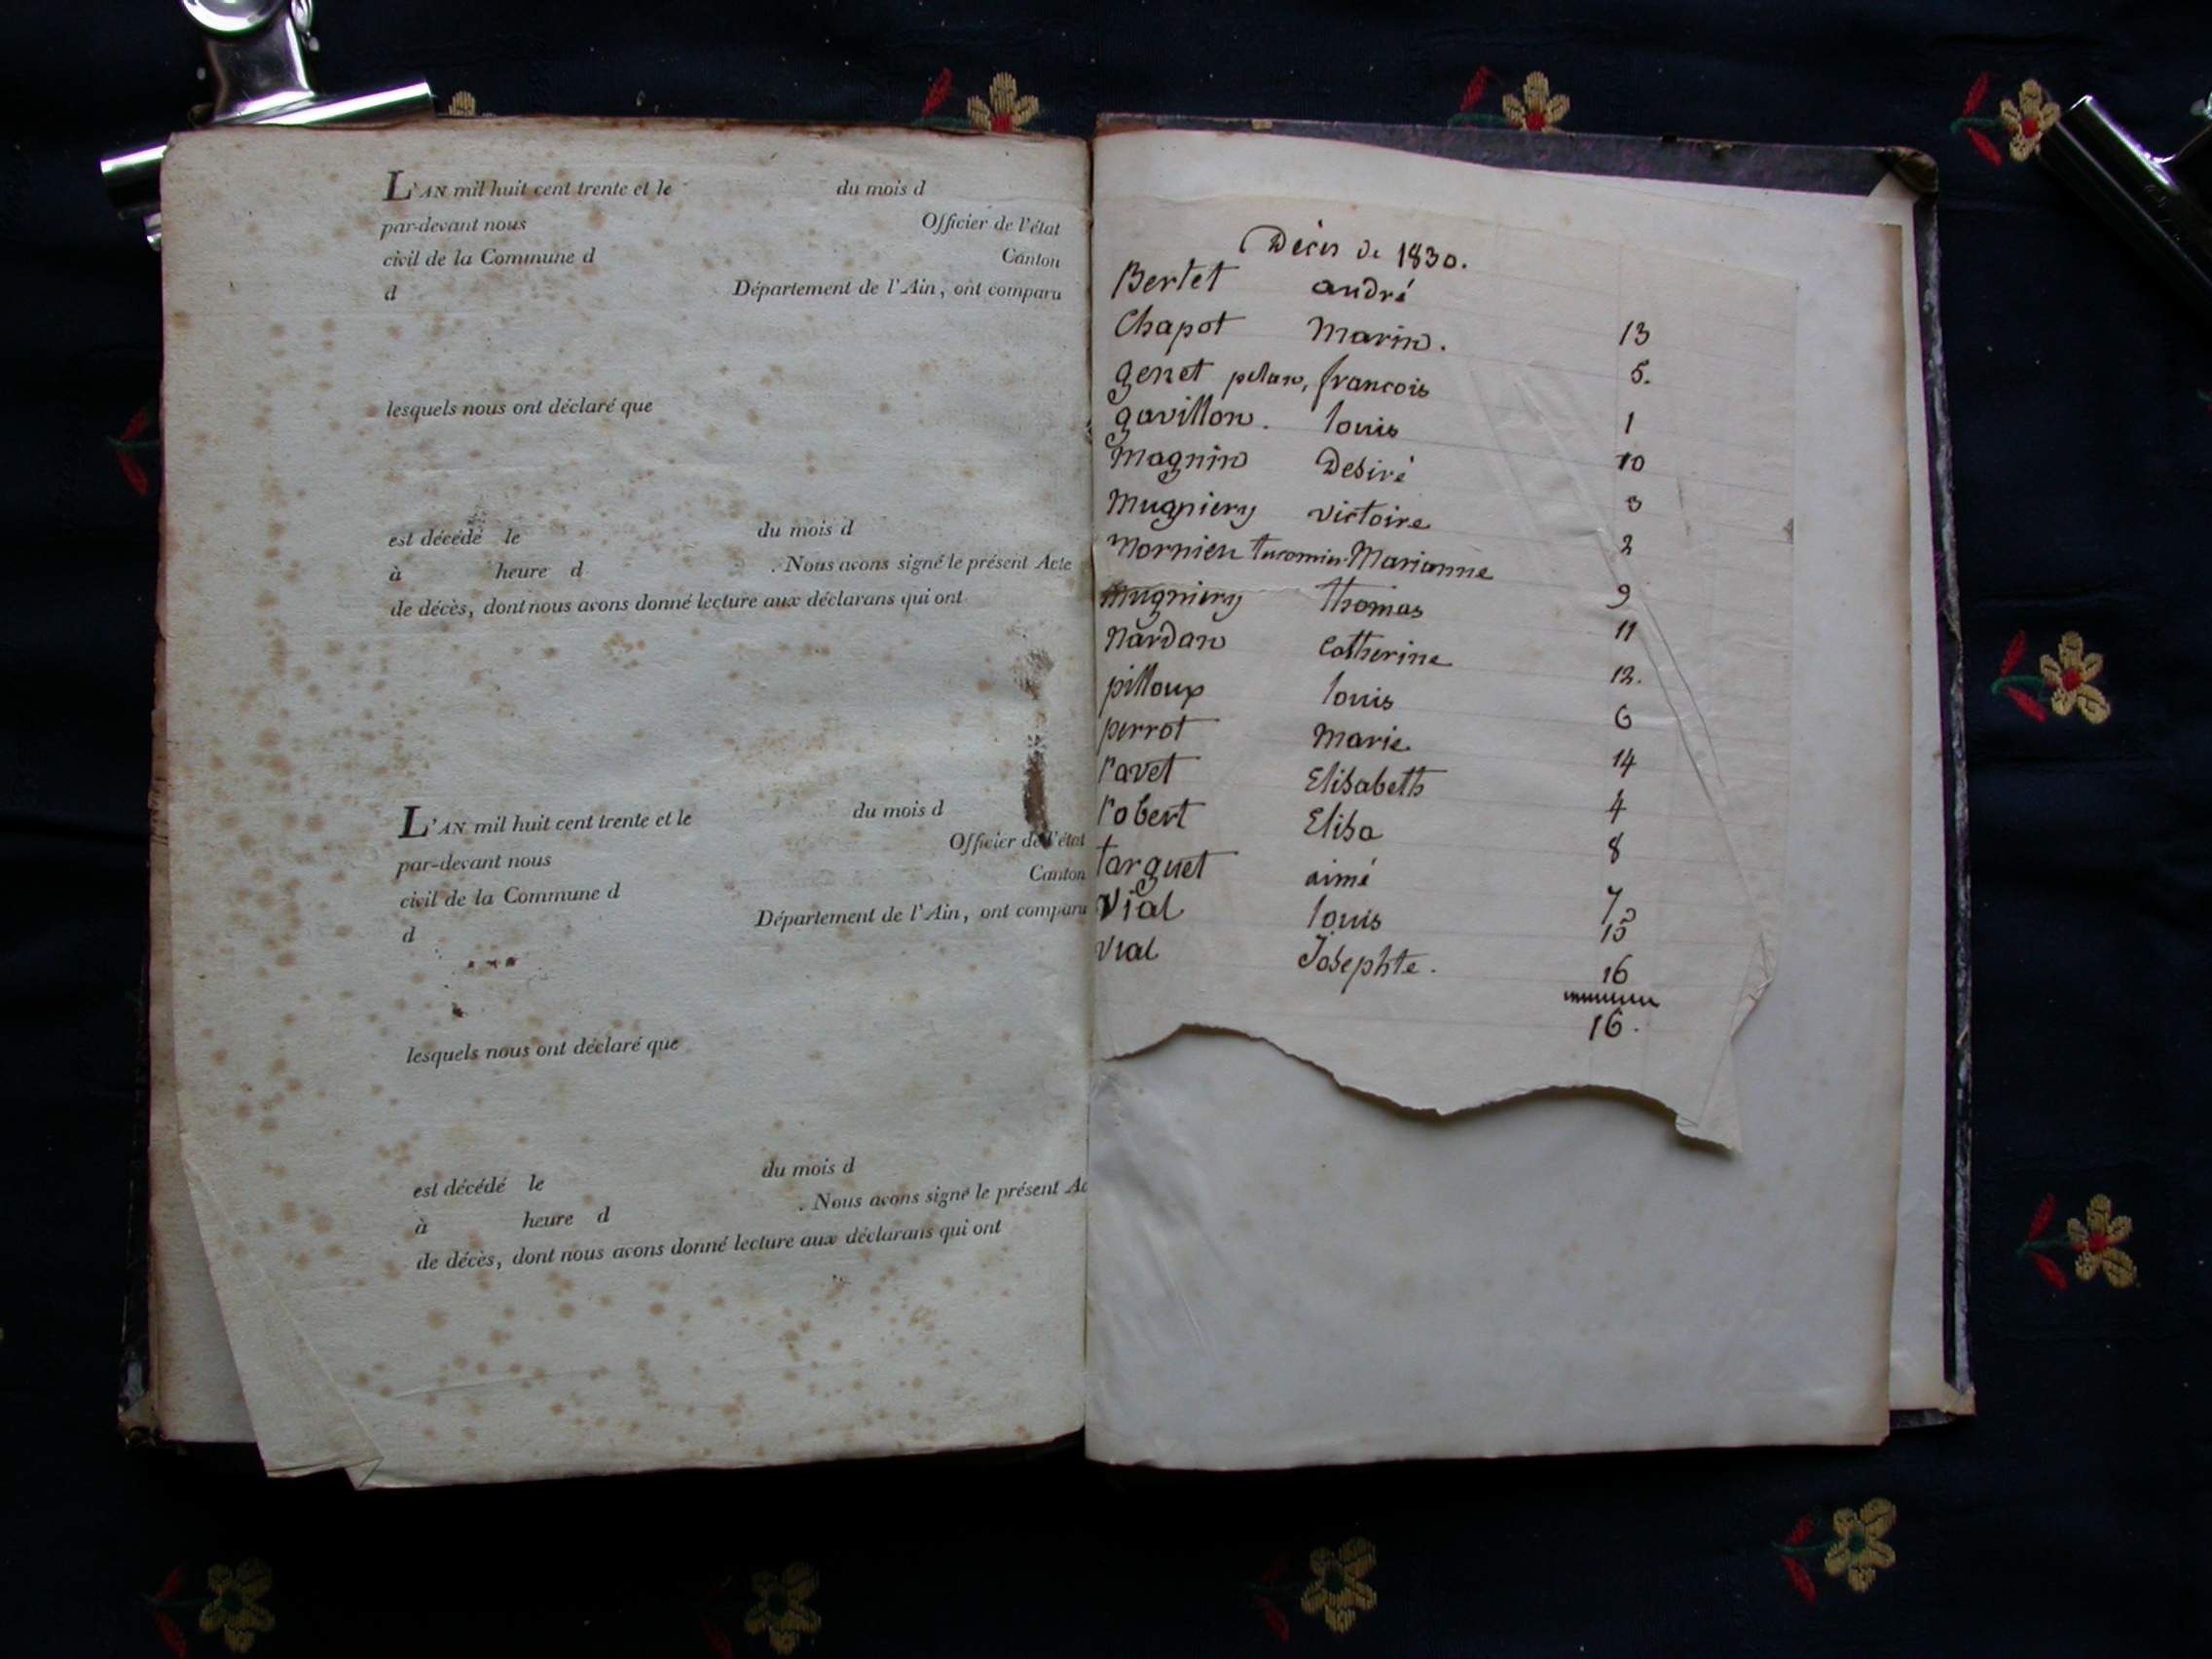 L'AN mil huit cent trente et le du mois d
par-devant nous Officier de l'état
civil de la Commune d Canton
d Département de l'Ain, ont comparu
lesquels nous ont déclaré que
est décédé le du mois d
à heure d . Nous avons signé le présent Acte
de décès, dont nous avons donné lecture aux déclarans qui ont
L'AN mil huit cent trente et le du mois d
par-devant nous Officier de l'état
civil de la Commune d Canton
d Département de l'Ain, ont comparu
lesquels nous ont déclaré que
est décédé le du mois d
à heure d . Nous avons signé le présent Ac
de décès, dont nous avons donné lecture aux déclarans qui ont
Décès de 1830.
Bertet andré 13
Chapot Marin. 5.
genet françois 1
gavillon. louis 10
Magnin Desiré 3
Mugniery victoire 2
Mornieu Marianne 9
Mugniery thomas 11
Nardan Catherine 12.
pilloux louis 6
perrot Marie 14
ravet Elisabeth 4
robert Elisa 8
targuet aimé 7
Vial louis 15
Vial Josephte. 16
16.